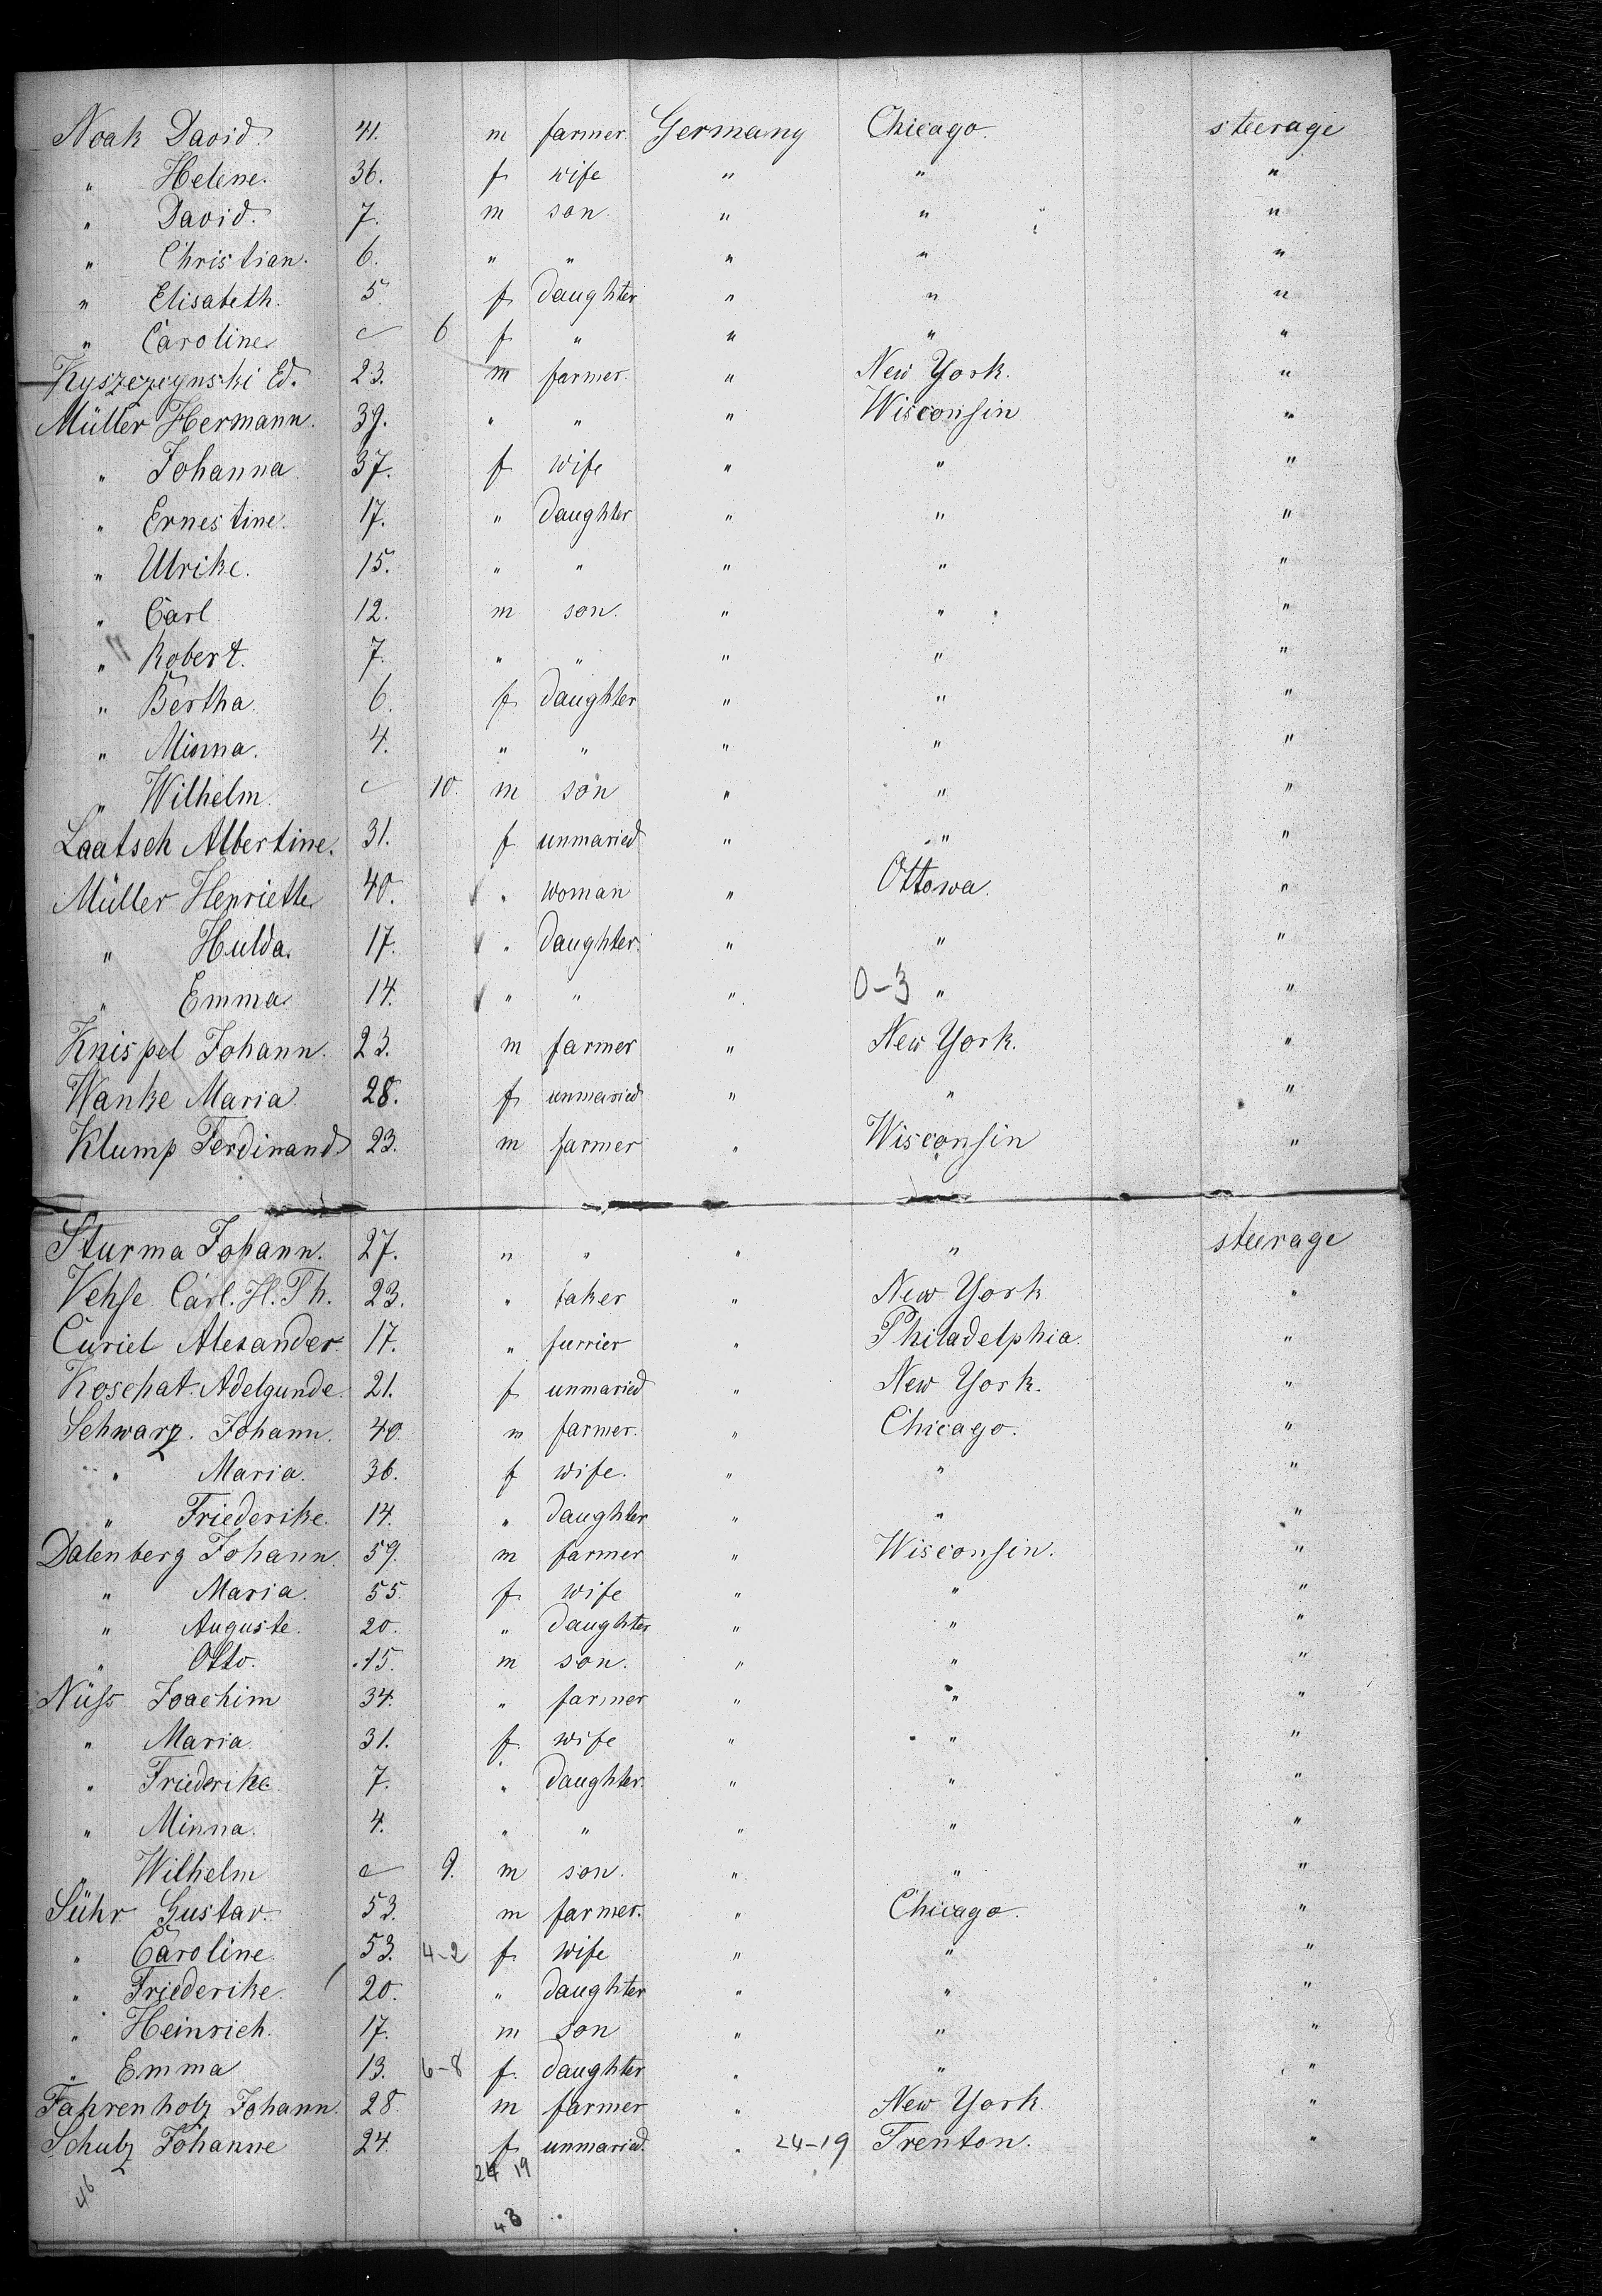 Noak David. 41. m farmer. Germany Chicago. steerage
" Helene. 36. f wife " " "
" David. 7. m son. " " "
" Christian. 6. " " " " "
" Elisabeth. 5. f daughter " " "
" Caroline c 6 f " " " "
Kyszczynski Ed. 23. m farmer. " New York. "
Müller Hermann. 39. " " " Wisconsin "
" Johanna 37. f wife " " "
" Ernestine. 17. " daughter " " "
" Ulrike. 15. " " " " "
" Carl 12. m son. " " "
" Robert. 7. " " " " "
" Bertha. 6. f daughter " " "
" Minna. 4. " " " " "
" Wilhelm. c 10. m son " " "
Laatsch Albertine. 31. f unmaried " " "
Müller Henriette 40. " woman " Ottowa. "
" Hulda. 17. " daughter. " " "
" Emma 14. " " " 0-3 " "
Knispel Johann. 23. m farmer " New York. "
Wanke Maria 28. f unmaried " " "
Klump Ferdinand 23. m farmer " Wisconsin "
Sturma Johann. 27. " " " " steerage
Vehse Carl. H. Th. 23. " baker " New York "
Curiel Alexander. 17. " furrier " Philadelphia. "
Koschat. Adelgunde. 21. f unmaried " New York. "
Schwarz. Johann. 40. m farmer. " Chicago. "
" Maria. 36. f wife. " " "
" Friederike. 14. " daughter " " "
Dalenberg Johann. 59. m farmer " Wisconsin. "
" Maria. 55. f wife " " "
" Auguste. 20. " daughter " " "
" Otto. 15. m son. " " "
Nüss Joachim 34. " farmer " " "
" Maria. 31. f wife " " "
" Friederike 7. " daughter. " " "
" Minna. 4. " " " " "
" Wilhelm c 9. m son. " " "
Sühr Gustav. 53. m farmer. " Chicago. "
" Caroline 53. 4-2 f wife " " "
" Friederike. 20. " daughter " " "
" Heinrich. 17. m son " " "
" Emma 13. 6-8 f. daughter " " "
Fahrenholz Johann. 28. m farmer " New York. "
Schulz Johanne 24 f unmaried. " 24-19 Trenton. "
24 19
46
43